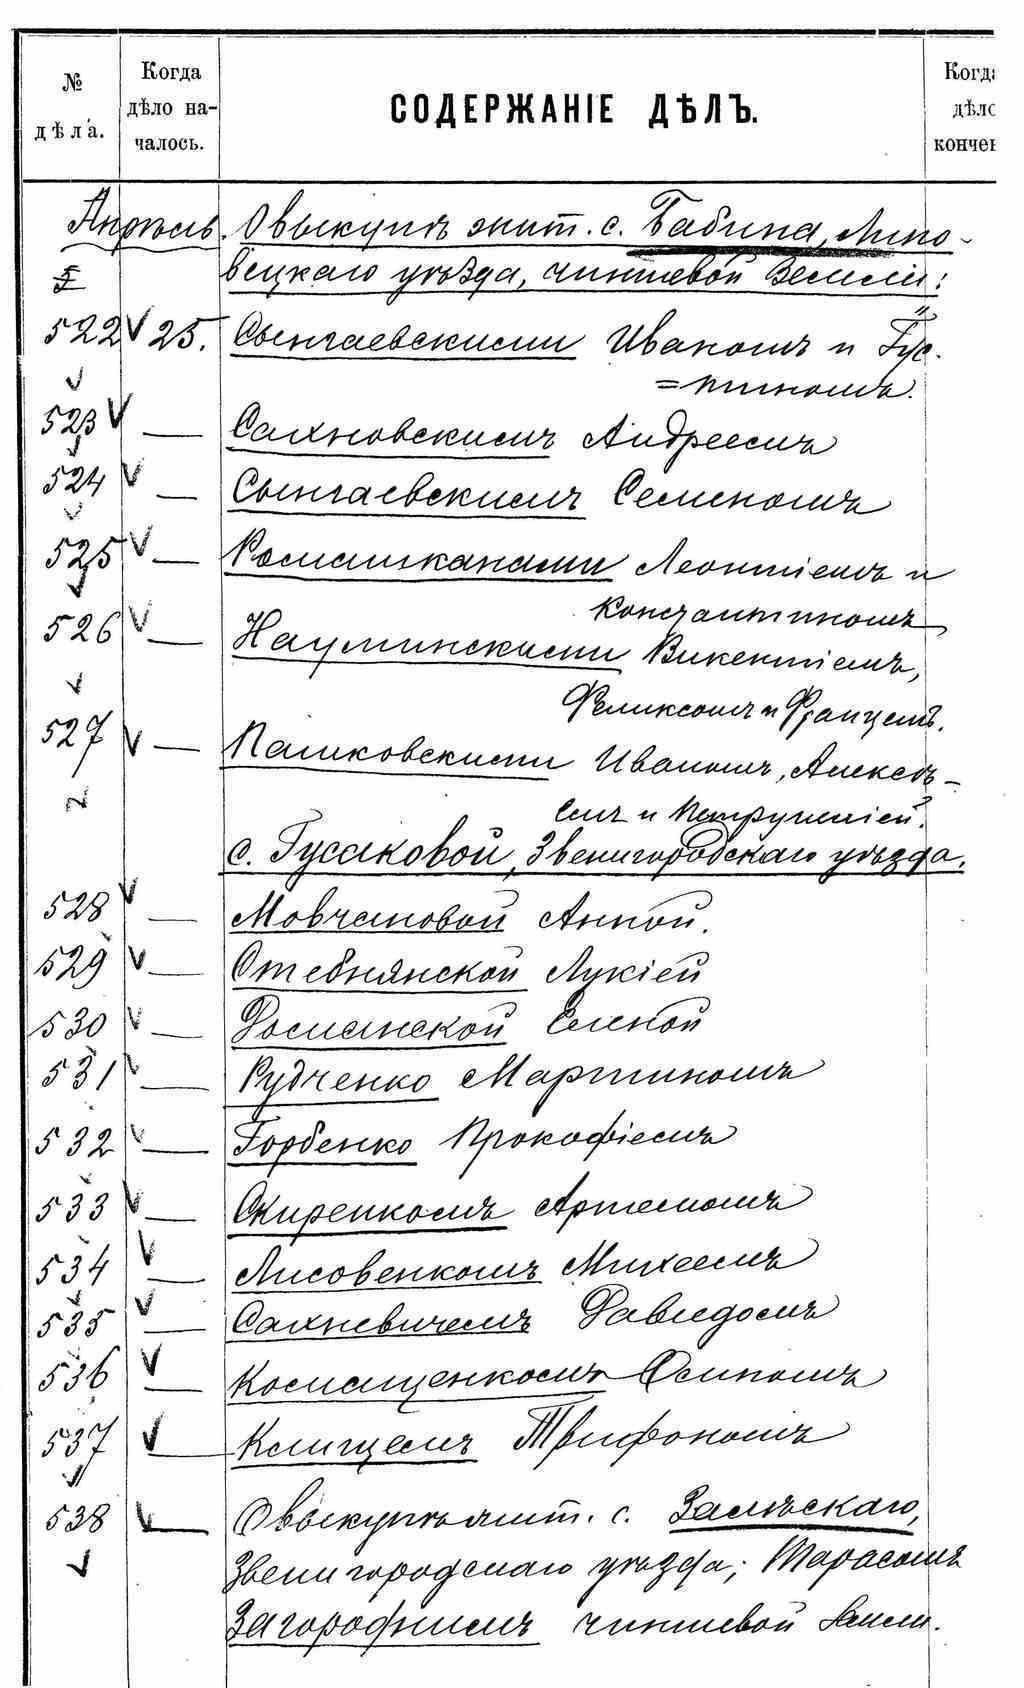 № дѣла.
Когда дѣло на-чалось.
СОДЕРЖАНІЕ ДѢЛЪ.
Когда дѣло кончен
Апрѣль. О выкупѣ жит. с. Бабина, Липо-
вецкаго уѣзда, чиншевой земли:
522 25. Сынгаевскими Иваномъ и Гус-
=тиномъ.
523 — Сахновскимъ Андреемъ
524 — Сынгаевскимъ Семеномъ
525 — Ромашканами Леонтіемъ и
Константиномъ
526 — Науминскими Викентіемъ,
Феликсомъ и Францемъ.
527 — Пашковскими Иваномъ, Алексѣ-
емъ и Петрунелліей.
с. Гусаковой, Звенигородскаго уѣзда.
528 — Мовчановой Анной.
529 — Стебнянской Лукіей
530 — Доманской Еленой
531 — Рудченко Мартиномъ
532 — Горбенко Прокофіемъ
533 — Скиренкомъ Артемомъ
534 — Лисовенкомъ Михеемъ
535 — Сахневичемъ Давидомъ
536 — Комащенкомъ Осипомъ
537 — Клищемъ Трифономъ
538 — О выкупѣ жит. с. Залѣскаго,
Звенигородскаго уѣзда; Тарасомъ
Загороднимъ чиншевой земли.